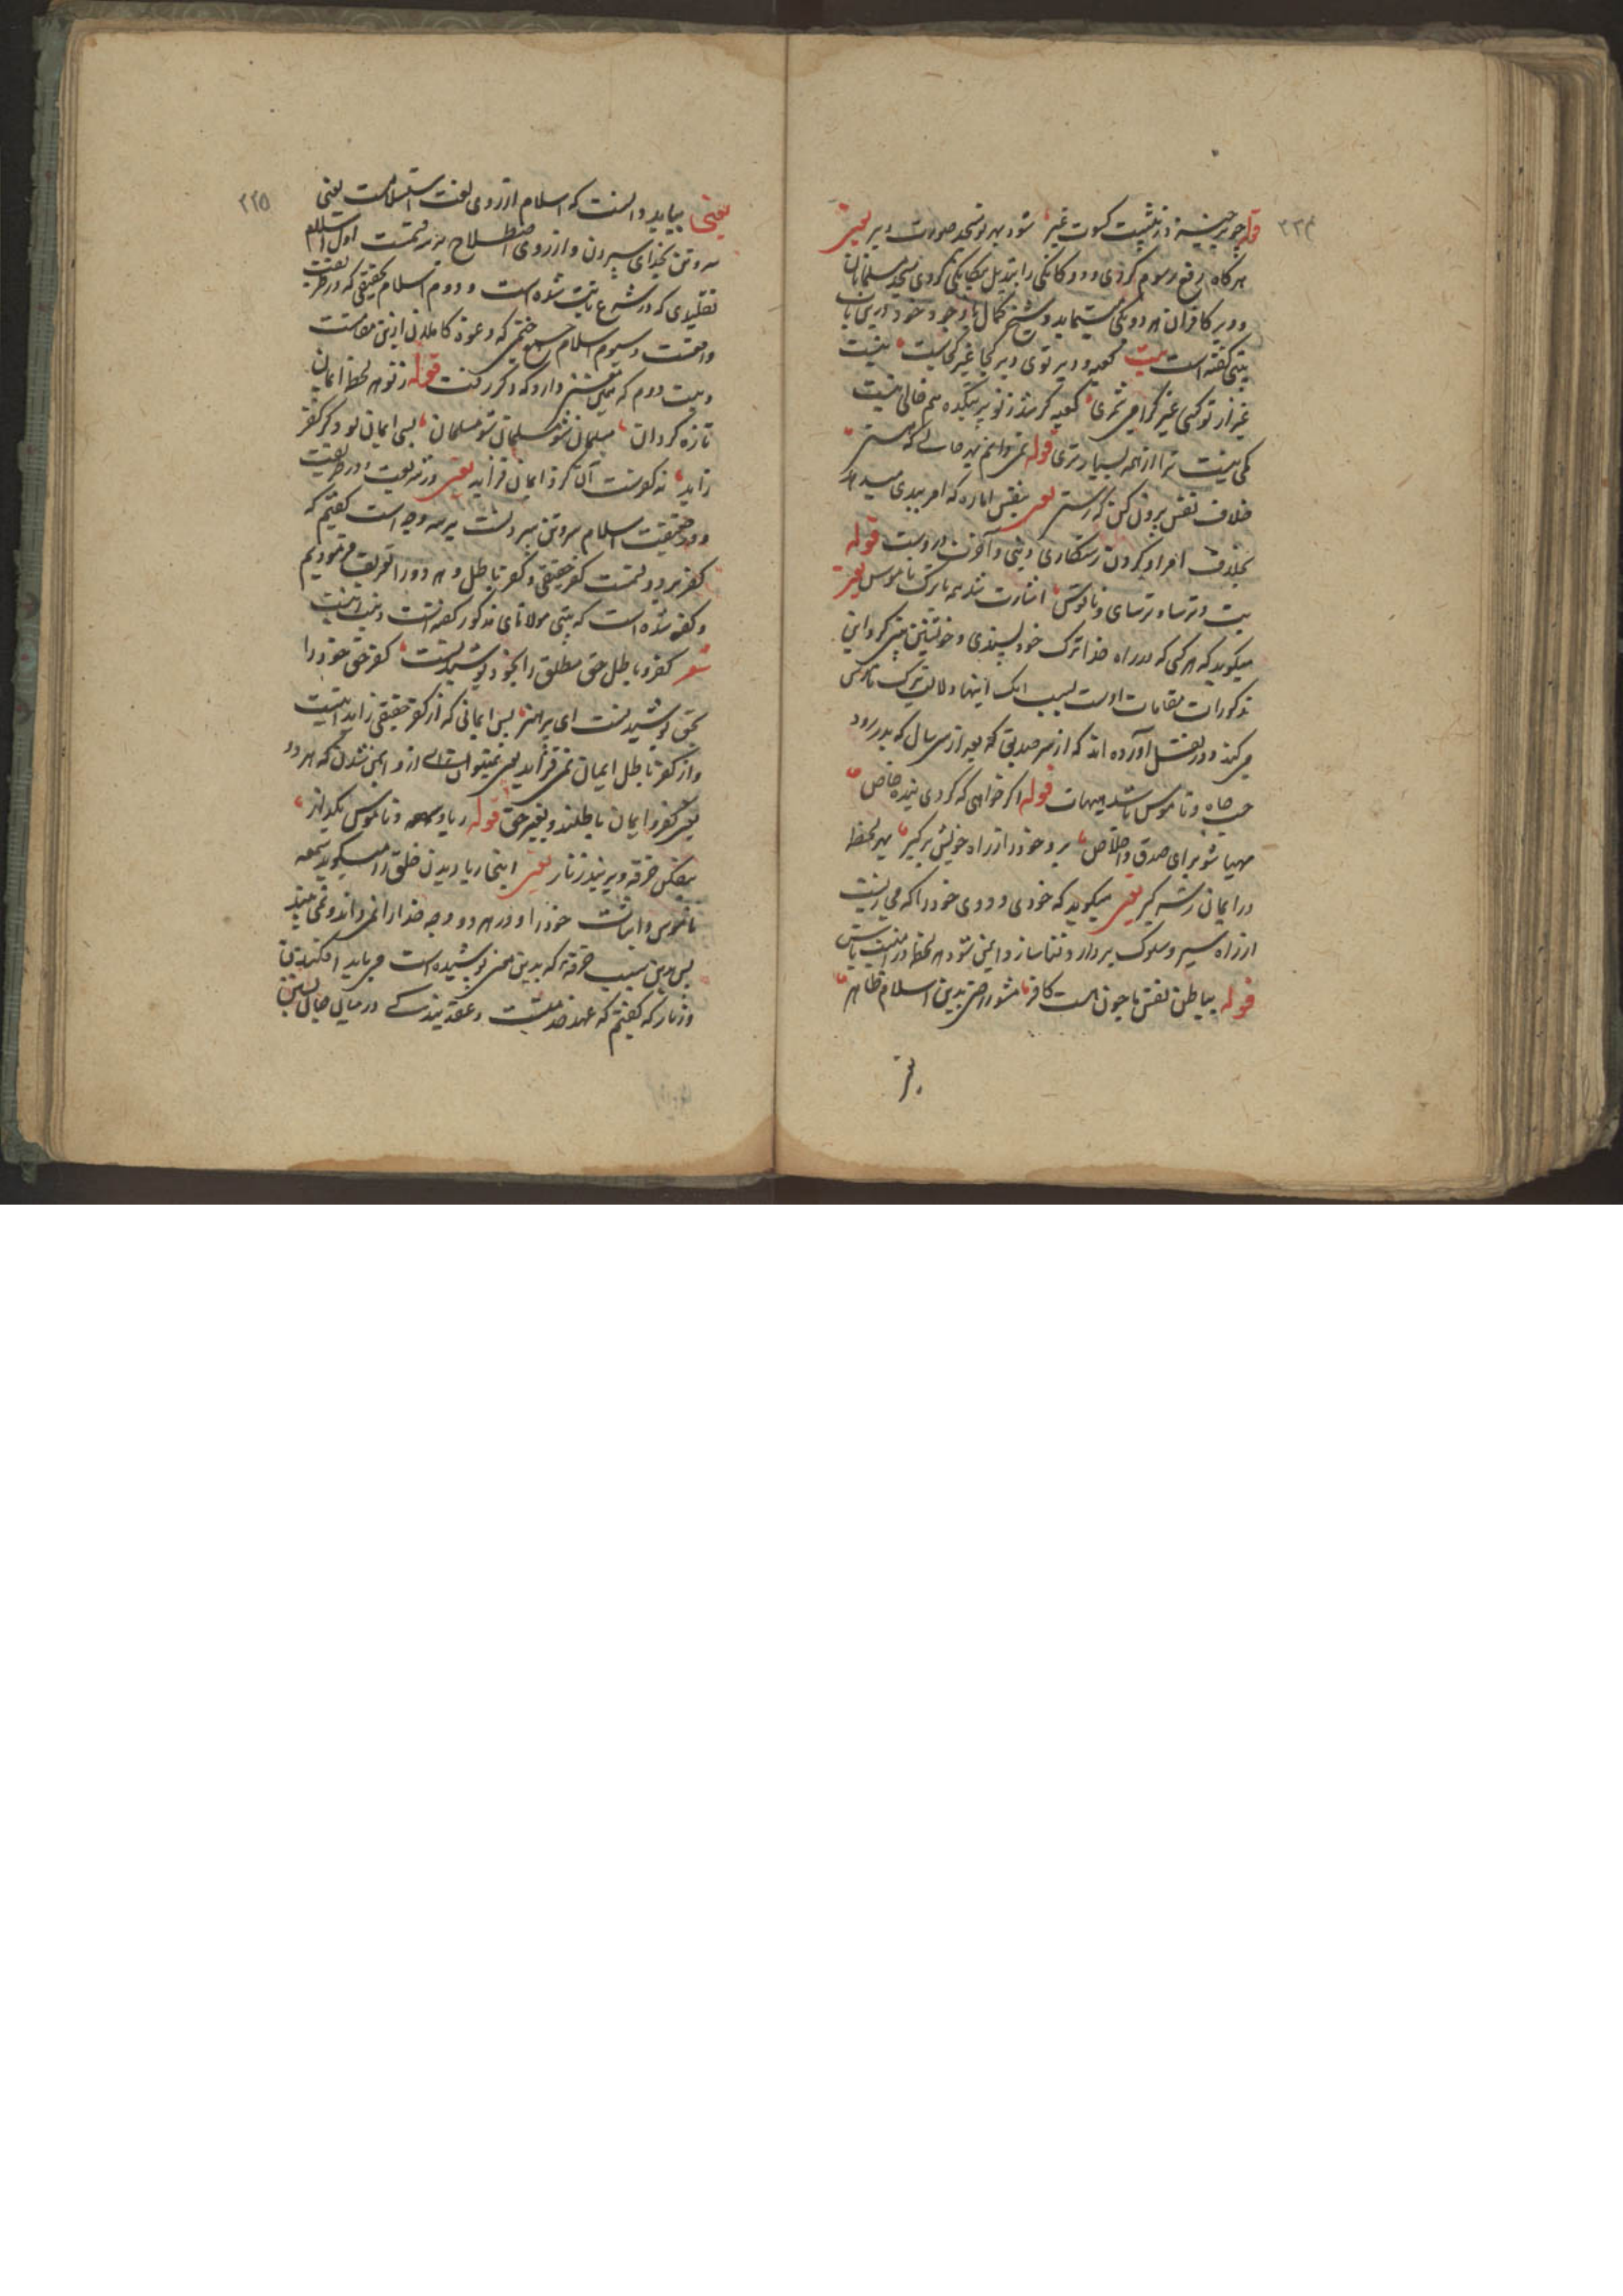 ۲۲۴
قوله چو برخیزد ز پیشت کسوت غیر شود بهر تو مسجد صورت دیر یعنی
هرگاه رفع رسوم کردی و دوگانگی را تبدیل بیکانگی کردی مسجد مسلمانان
و دیر کافران هر دو یکی مینماید و شیخ کمال با وجود خود درین باب
بیتی گفته است بیت کعبه و دیر توی دیر کجا غیر کجاست نیست
غیر از تو کسی غیر کرا می شمری کعبه گر شد ز تو پر بتکده هم خالی نیست
قوله نمی دانم بهر حالی که هستی
خلاف نفس بیرون کن که رستی یعنی بنفس اماره که امر ببدی میدهد
بخلاف امر او کردن رستگاری دنیی و آخرت دروست قوله
بت و ترسا و ترسای و ناقوس اشارت شد همه با ترک ناموس یعنی
میگوید که هر کسی که در راه خدا ترک خودپسندی و خویشتن بینی کرد این
مذکورات مقامات اوست بسبب آنک اینها دلالت بترک ناموس
می کند و در نقل آورده اند که از سر صدیقی که بعد از سی سال که بدر رود
حب جاه و ناموس باشد هیهات قوله اگر خواهی که گردی بنده خاص
مهیا شو برای صدق و اخلاص برو خود را ز راه خویش برگیر بهر لحظه
در ایمان ز سر گیر یعنی میگوید که خودی و دوی خود را که می ز نیست
از راه سیر و سلوک بردار و فنا ساز و ایمن شو و هر لحظه در
قوله بباطن نفس ما چون هست کافر مشو راضی بدین اسلام ظاهر
۲۲۵
یعنی بباید دانست که اسلام از روی لغت استسلامست یعنی
سر و تن بخدای سپردن و از روی اصطلاح بر سه قسمت اول اسلام
تقلیدی که در شرع ثابت شده است و دوم اسلام حقیقی که در طریقت
واقعست و سیوم اسلام که دعوة کاملان ازین مقامست
و بیت دوم که همین معنی دارد که ذکر رفت قوله ز نو هر لحظه ایمان
تازه گردان مسلمان شو مسلمان شو مسلمان بسی ایمان بود کز کفر
زاید نه کفرست آن کزو ایمان فزاید یعنی در شریعت و در طریقت
و در حقیقت اسلام سر و تن سپردنست بر سه وجه است گفتیم که
کفر بر دو قسمت کفر حقیقی و کفر باطل و هر دو را تعریف فرمودیم
و گفته شده است که بیتی مولانای مذکور گفتست و بیت اینست
شعر کفر باطل حق مطلق را بخود پوشیدنست کفر حق خود را
بحق پوشیدنست ای پرهنر پس ایمانی که از کفر حقیقی زاید اینست
و از کفر باطل ایمان نمی فزاید یعنی نمیتوان از و ایمن شدن که هر دو
یعنی کفر و ایمان باطلند و بغیر حق قوله ریا و سمعه و ناموس بگذار
بیفکن خرقه و بربند زنار یعنی اینجا ریا دیدن خلق را میگوید سمعه
ناموس و اثبات خود را و در هر دو وجه خدا را نمی داند و نمی بیند
پس بدین سبب خرقه که بدین معنی پوشیده است می باید افکندن
و زنار که گفتیم که عهد خدمتست و عقد بندگی در میان جان بستن